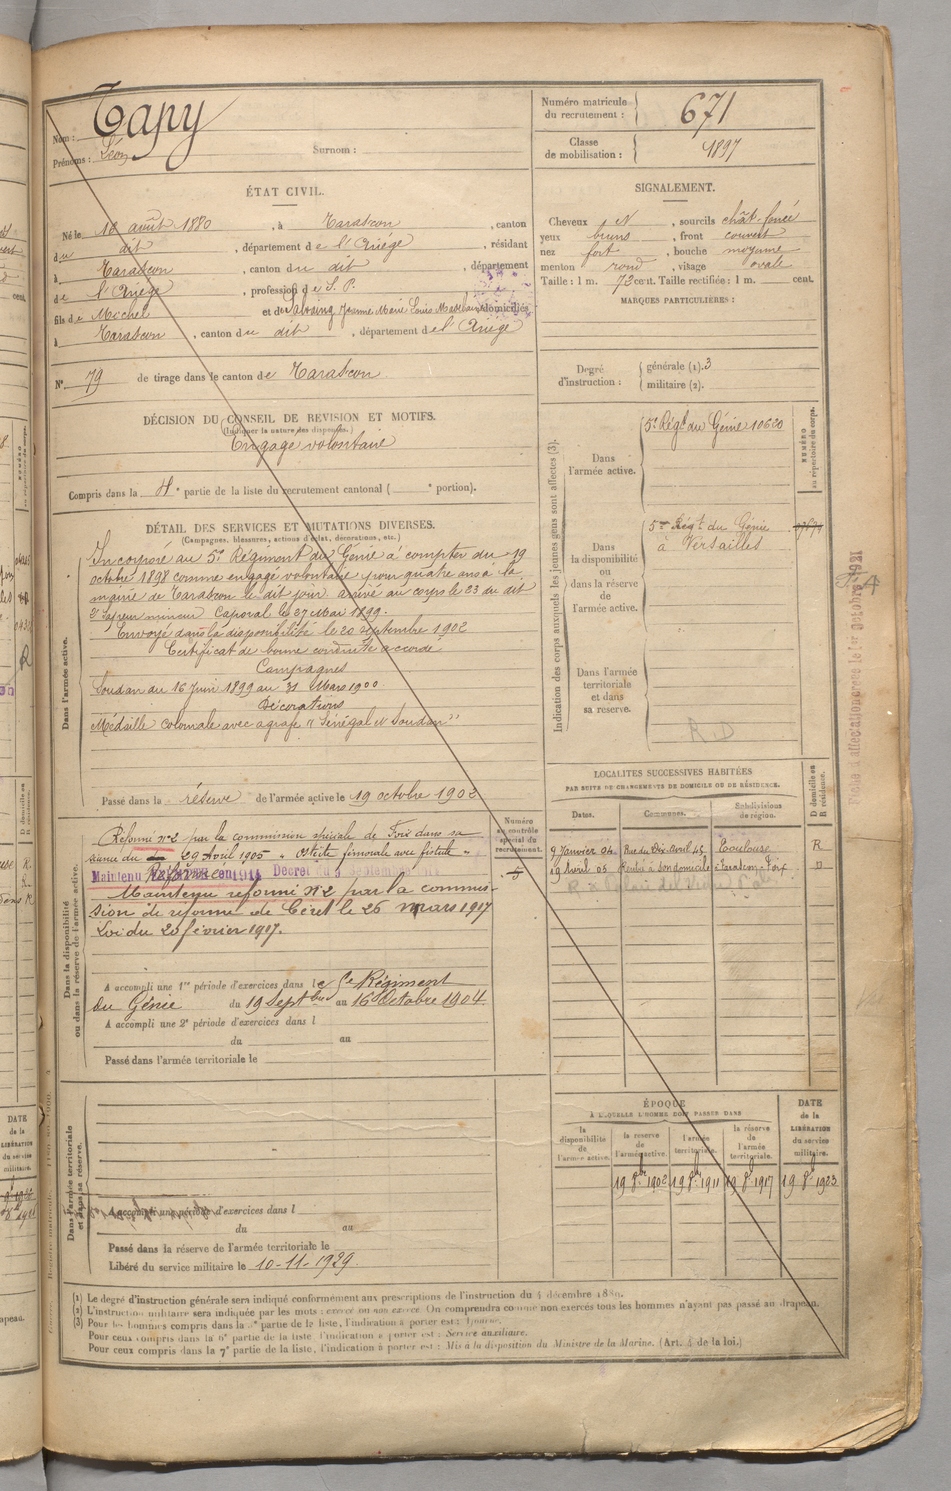 Nom : Tapy
Prénoms : Léon Surnom :
Numéro matricule du recrutement : 671
Classe de mobilisation : 1897
ÉTAT CIVIL.
Né le 18 août 1880, à Tarascon, canton
du dit, département de l'Ariége, résidant
à Tarascon, canton du dit, département
de l'Ariége, profession de S. P.
fils de Michel et de Salvaing Jeanne Marie Louise domiciliés
à Tarascon, canton du dit, département de l'Ariége
N° 79 de tirage dans le canton de Tarascon
DÉCISION DU CONSEIL DE REVISION ET MOTIFS.
(Indiquer la nature des dispenses.)
Engagé volontaire
Compris dans la 4e partie de la liste du recrutement cantonal ( e portion).
SIGNALEMENT.
Cheveux N, sourcils chât-foncé
yeux bruns, front couvert
nez fort, bouche moyenne
menton rond, visage ovale
Taille : 1 m. 72 cent. Taille rectifiée : 1 m. cent.
MARQUES PARTICULIÈRES :
Degré d'instruction : générale (1). 3
militaire (2).
DÉTAIL DES SERVICES ET MUTATIONS DIVERSES.
(Campagnes, blessures, actions d'éclat, décorations, etc.)
Dans l'armée active.
Incorporé au 5e Régiment du Génie à compter du 19
octobre 1898 comme engagé volontaire pour quatre ans à la
mairie de Tarascon le dit jour arrivé au corps le 23 du dit
2e sapeur mineur Caporal le 27 Mai 1899.
Envoyé dans la disponibilité le 20 septembre 1902
Certificat de bonne conduite accordé
Campagnes
Soudan du 16 Juin 1899 au 31 Mars 1900.
Décorations
Médaille coloniale avec agrafe "Sénégal et Soudan"
Passé dans la réserve de l'armée active le 19 octobre 1902
Indication des corps auxquels les jeunes gens sont affectés (3).
NUMÉRO au répertoire du corps.
Dans l'armée active. 5e Régt du Génie 10620
Dans la disponibilité ou dans la réserve de l'armée active. 5me Régt du Génie
à Versailles
Dans l'armée territoriale et dans sa réserve.
R. D
Numéro au contrôle spécial du recrutement.
Dans la disponibilité ou dans la réserve de l'armée active.
Réformé n°2 par la commission spéciale de Foix dans sa
séance du 29 Avril 1905 "Ostéite fémorale avec fistule"
Maintenu Réformé Décret du 9 Septembre 1914
Maintenu réformé N°2 par la commis-
sion de réforme de Céret le 26 mars 1917
Loi du 20 février 1917.
A accompli une 1re période d'exercices dans le 5e Régiment
du Génie du 19 Septbre au 16 Octobre 1904
A accompli une 2e période d'exercices dans l
du au
Passé dans l'armée territoriale le
LOCALITÉS SUCCESSIVES HABITÉES
PAR SUITE DE CHANGEMENTS DE DOMICILE OU DE RÉSIDENCE.
Dates. Communes. Subdivisions de région. D domicile ou R résidence.
9 Janvier 04 Rue du Dix Avril 45 Toulouse R
19 Avril 05 Rentré à son domicile à Tarascon Foix D
Dans l'armée territoriale et dans sa réserve.
A accompli une période d'exercices dans l
du au
Passé dans la réserve de l'armée territoriale le
Libéré du service militaire le 10-11-1929.
ÉPOQUE
À LAQUELLE L'HOMME DOIT PASSER DANS
la disponibilité de l'armée active. la réserve de l'armée active. l'armée territoriale. la réserve de l'armée territoriale.
DATE de la LIBÉRATION du service militaire.
19 8bre 1902 19 8bre 1911 19 8bre 1917 19 8bre 1923
(1) Le degré d'instruction générale sera indiqué conformément aux prescriptions de l'instruction du 4 décembre 1889.
(2) L'instruction militaire sera indiquée par les mots : exercé ou non exercé. On comprendra comme non exercés tous les hommes n'ayant pas passé au drapeau.
(3) Pour les hommes compris dans la 5e partie de la liste, l'indication à porter est : Ajourné.
Pour ceux compris dans la 6e partie de la liste, l'indication à porter est : Service auxiliaire.
Pour ceux compris dans la 7e partie de la liste, l'indication à porter est : Mis à la disposition du Ministre de la Marine. (Art. 4 de la loi.)